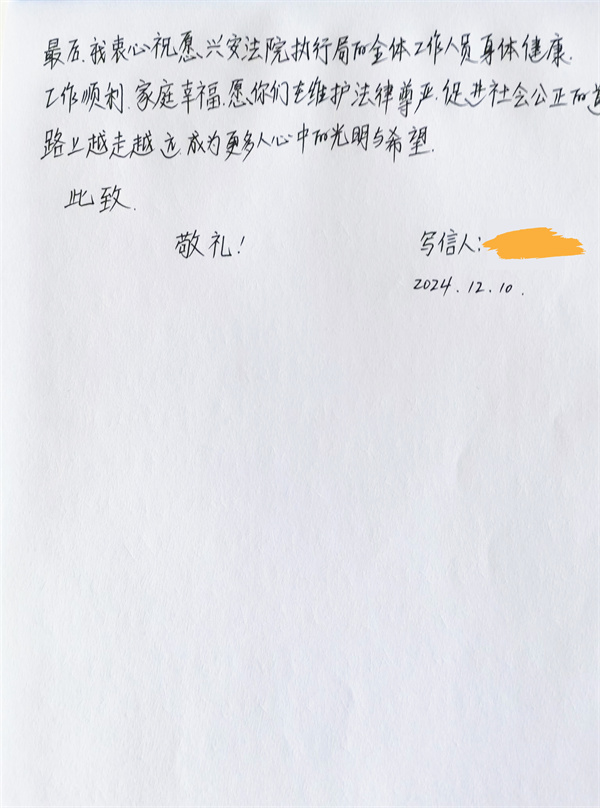 最后,我衷心祝愿,兴安法院执行局的全体工作人员身体健康.
工作顺利.家庭幸福.愿你们在维护法律尊严.促进社会公正的道
路上越走越远.成为更多人心中的光明与希望.
此致.
敬礼!
写信人:
2024.12.10.